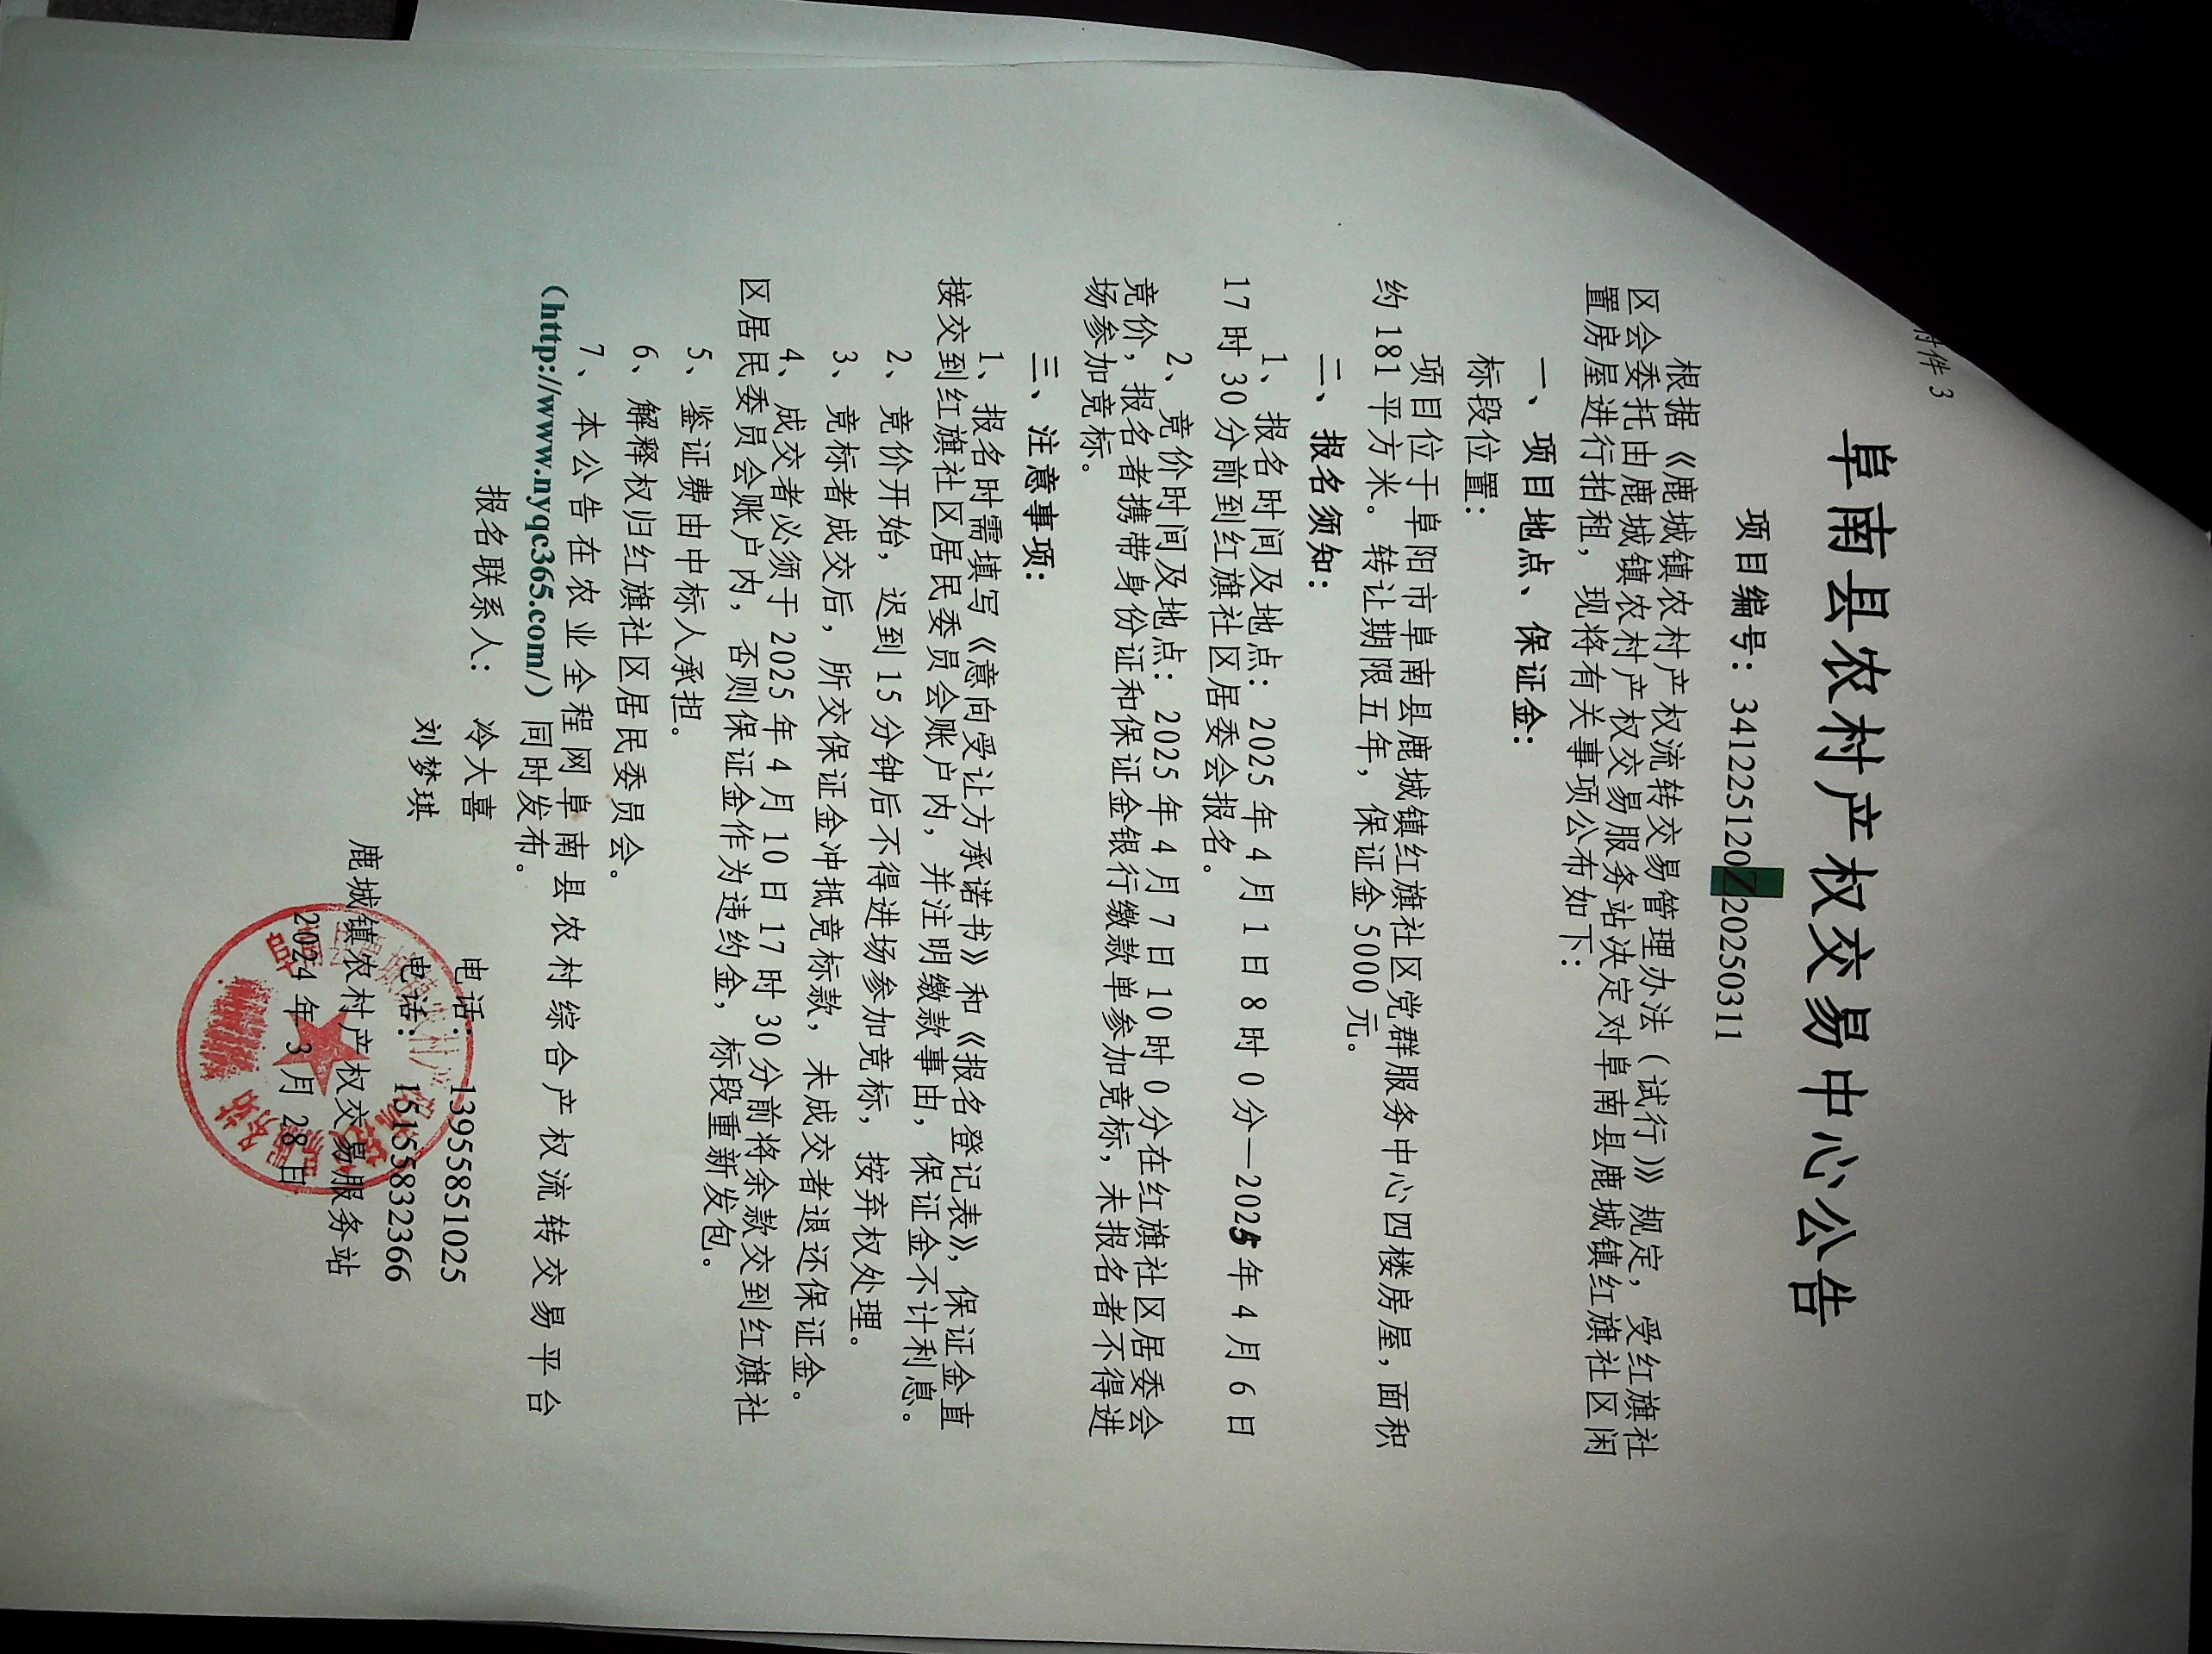 附件 3
阜南县农村产权交易中心公告
项目编号：3412251202Z20250311
根据《鹿城镇农村产权流转交易管理办法（试行）》规定，受红旗社
区会委托由鹿城镇农村产权交易服务站决定对阜南县鹿城镇红旗社区闲
置房屋进行拍租，现将有关事项公布如下：
一、项目地点、保证金：
标段位置：
项目位于阜阳市阜南县鹿城镇红旗社区党群服务中心四楼房屋，面积
约 181 平方米。转让期限五年，保证金 5000 元。
二、报名须知：
1、报名时间及地点：2025 年 4 月 1 日 8 时 0 分—2025 年 4 月 6 日
17 时 30 分前到红旗社区居委会报名。
2、竞价时间及地点：2025 年 4 月 7 日 10 时 0 分在红旗社区居委会
竞价，报名者携带身份证和保证金银行缴款单参加竞标，未报名者不得进
场参加竞标。
三、注意事项：
1、报名时需填写《意向受让方承诺书》和《报名登记表》，保证金直
接交到红旗社区居民委员会账户内，并注明缴款事由，保证金不计利息。
2、竞价开始，迟到 15 分钟后不得进场参加竞标，按弃权处理。
3、竞标者成交后，所交保证金冲抵竞标款，未成交者退还保证金。
4、成交者必须于 2025 年 4 月 10 日 17 时 30 分前将余款交到红旗社
区居民委员会账户内，否则保证金作为违约金，标段重新发包。
5、鉴证费由中标人承担。
6、解释权归红旗社区居民委员会。
7、本公告在农业全程网阜南县农村综合产权流转交易平台
（http://www.nyqc365.com/）同时发布。
报名联系人： 冷大喜 电话：13955851025
刘梦琪 电话：15155832366
鹿城镇农村产权交易服务站
2024 年 3 月 28 日